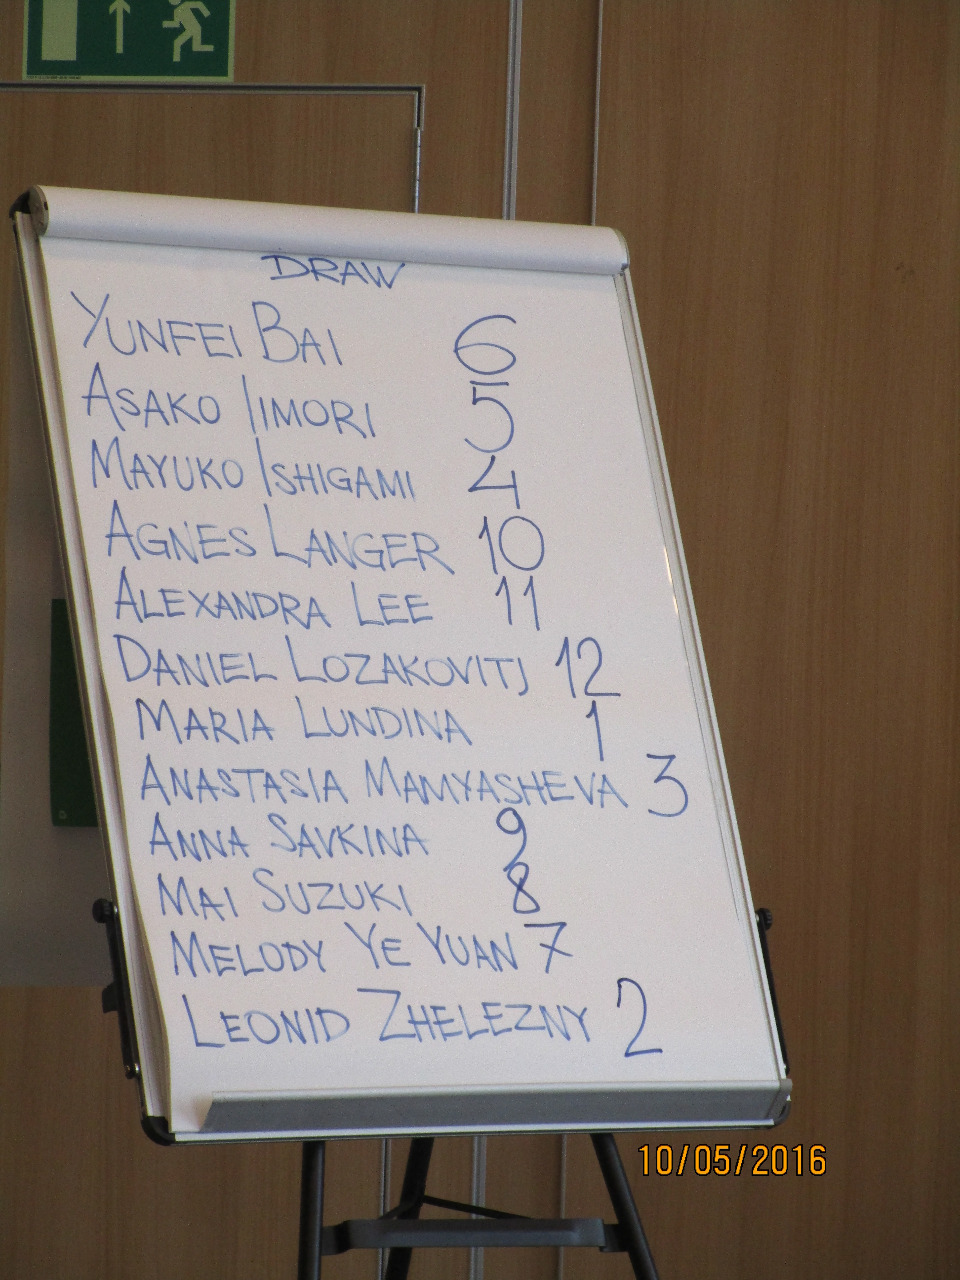 DRAW
YUNFEI BAI 6
ASAKO IIMORI 5
MAYUKO ISHIGAMI 4
AGNES LANGER 10
ALEXANDRA LEE 11
DANIEL LOZAKOVITJ 12
MARIA LUNDINA 1
ANASTASIA MAMYASHEVA 3
ANNA SAVKINA 9
MAI SUZUKI 8
MELODY YE YUAN 7
LEONID ZHELEZNY 2
10/05/2016